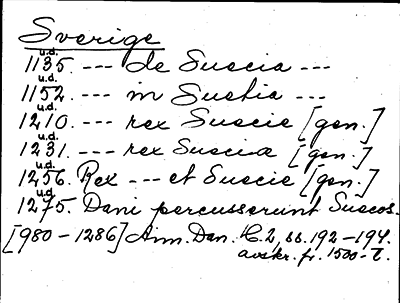 Sverige
u.d.
1135. --- de Suecia ---
u.d.
1152. --- in Suetia ---
u.d.
1210. --- rex Suecie [gen.]
u.d.
1231. --- rex Sueciæ [gen.]
u.d.
1256. Rex --- et Suecie [gen.]
u.d.
1275. Dani percusserunt Suecos.
[980-1286] Ann. Dan. H. 2, ss. 192-194.
avskr. fr. 1500-t.